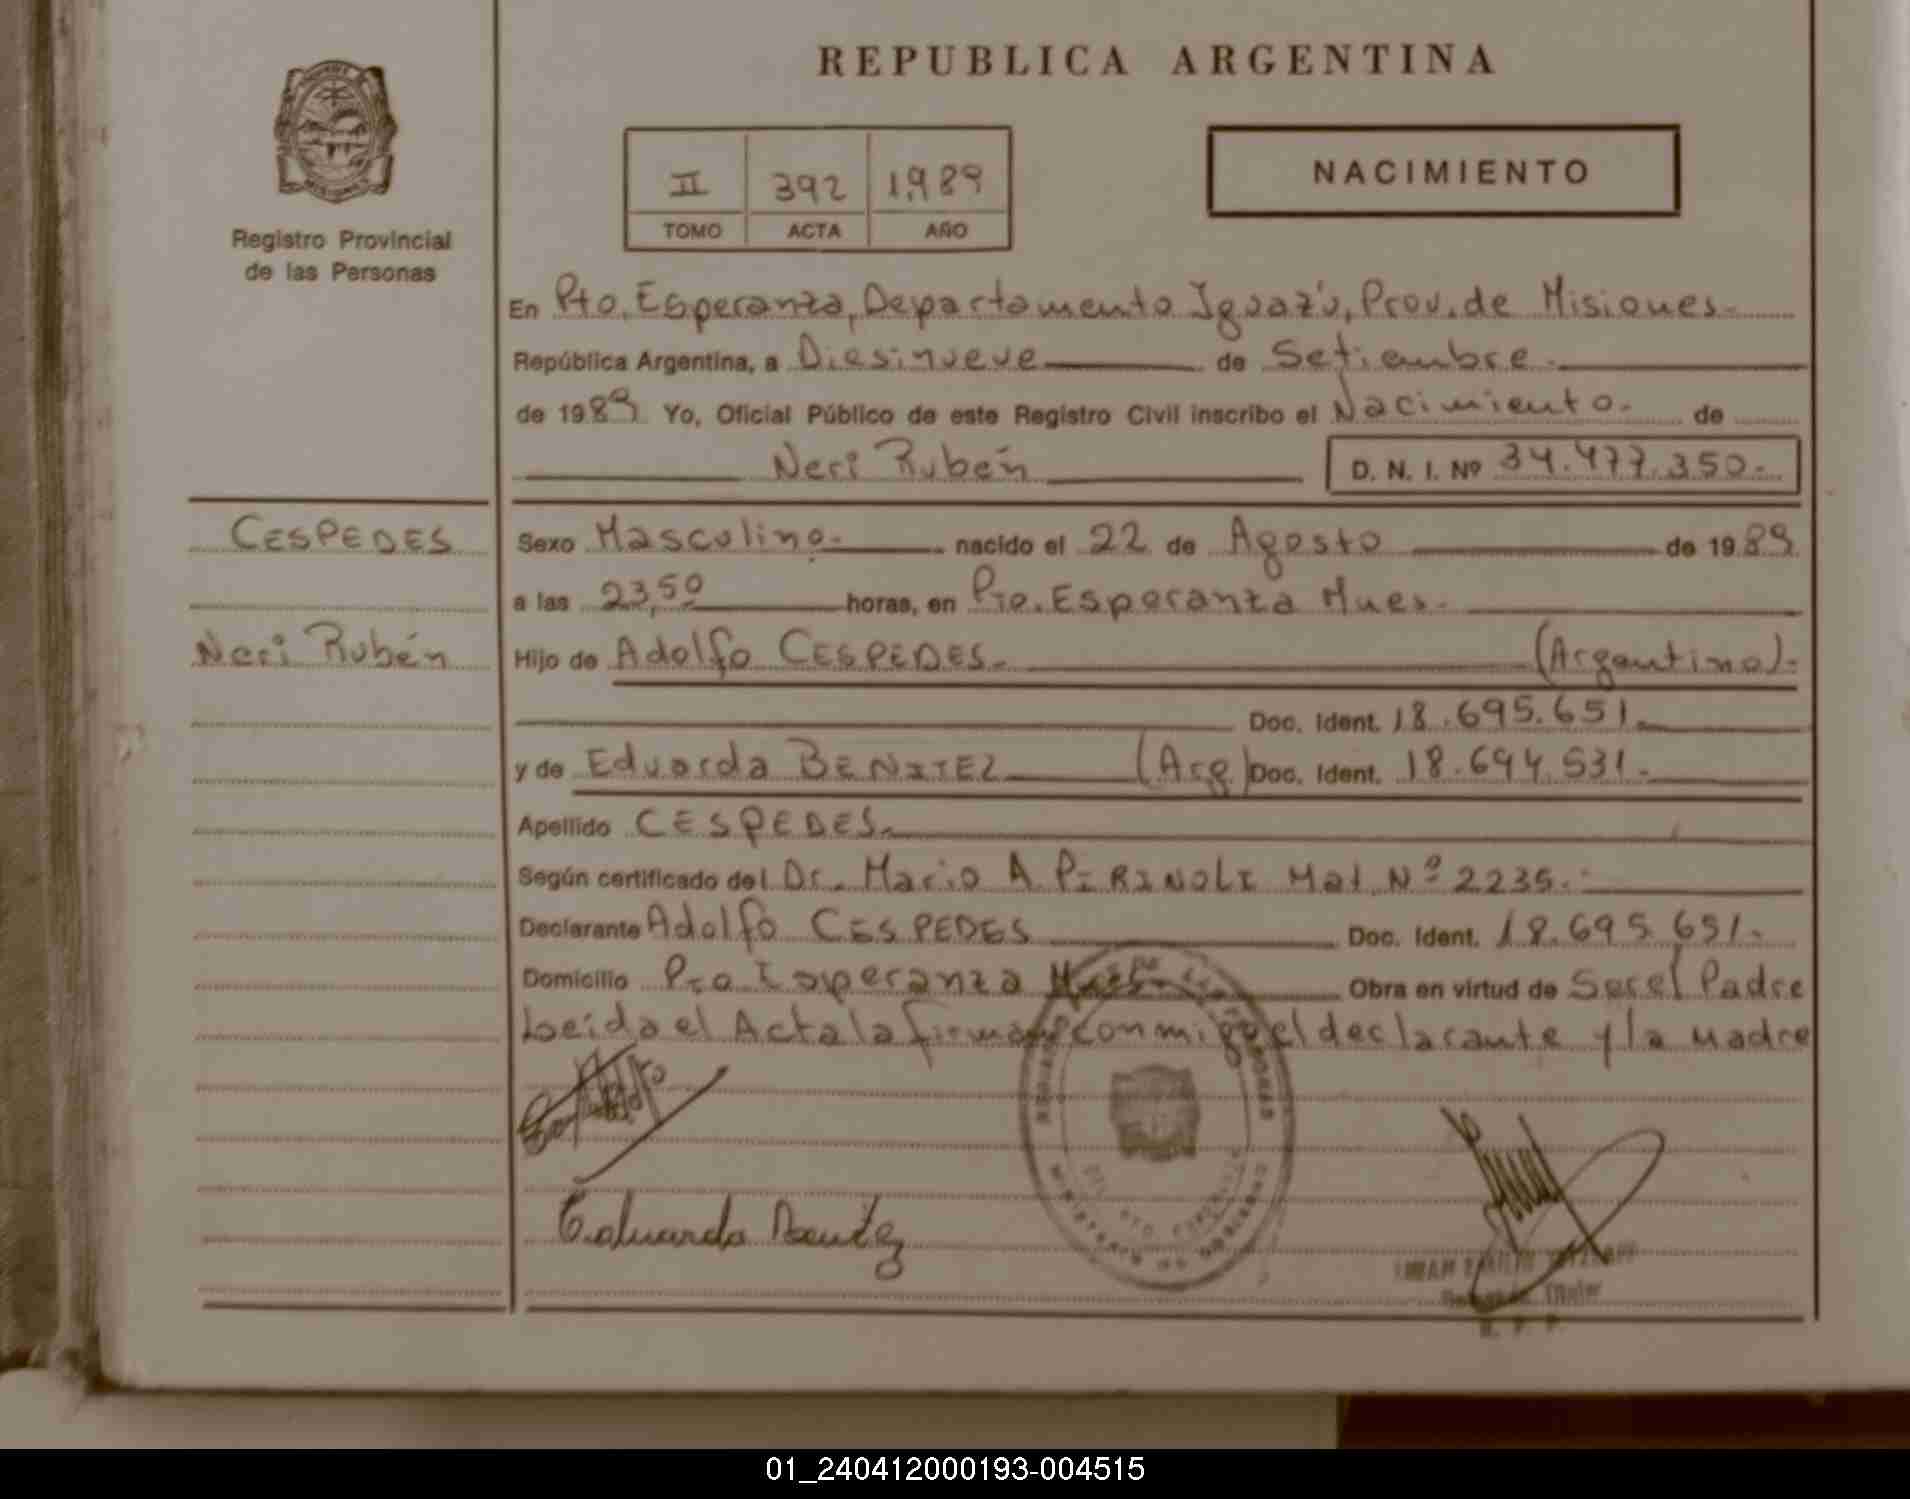 REPUBLICA ARGENTINA
NACIMIENTO
II 392 1.989
TOMO ACTA AÑO
Registro Provincial
de las Personas
En Pto. Esperanza, Departamento Iguazú, Prov. de Misiones.
República Argentina, a Diesinueve de Setiembre.
de 1989 Yo, Oficial Público de este Registro Civil inscribo el Nacimiento. de
Neri Rubén D. N. I. Nº 34.477.350.-
CESPEDES
Neri Rubén
Sexo Masculino. nacido el 22 de Agosto de 1989
a las 23,50 horas, en Pto. Esperanza Mnes.
Hijo de Adolfo CESPEDES. (Argentino).
Doc. Ident. 18.695.651.
y de Eduarda BENITEZ (Arg.) Doc. Ident. 18.694.531.
Apellido CESPEDES.
Según certificado del Dr. Mario A. PIRINOLI Mat. Nº 2235.
Declarante Adolfo CESPEDES Doc. Ident. 18.695.651.
Domicilio Pto Esperanza Mnes. Obra en virtud de Ser el Padre
Leída el Acta la firman conmigo el declarante y la Madre
Eduarda Benitez
MINISTERIO DE GOBIERNO
Titular
R. P. P.
01_240412000193-004515